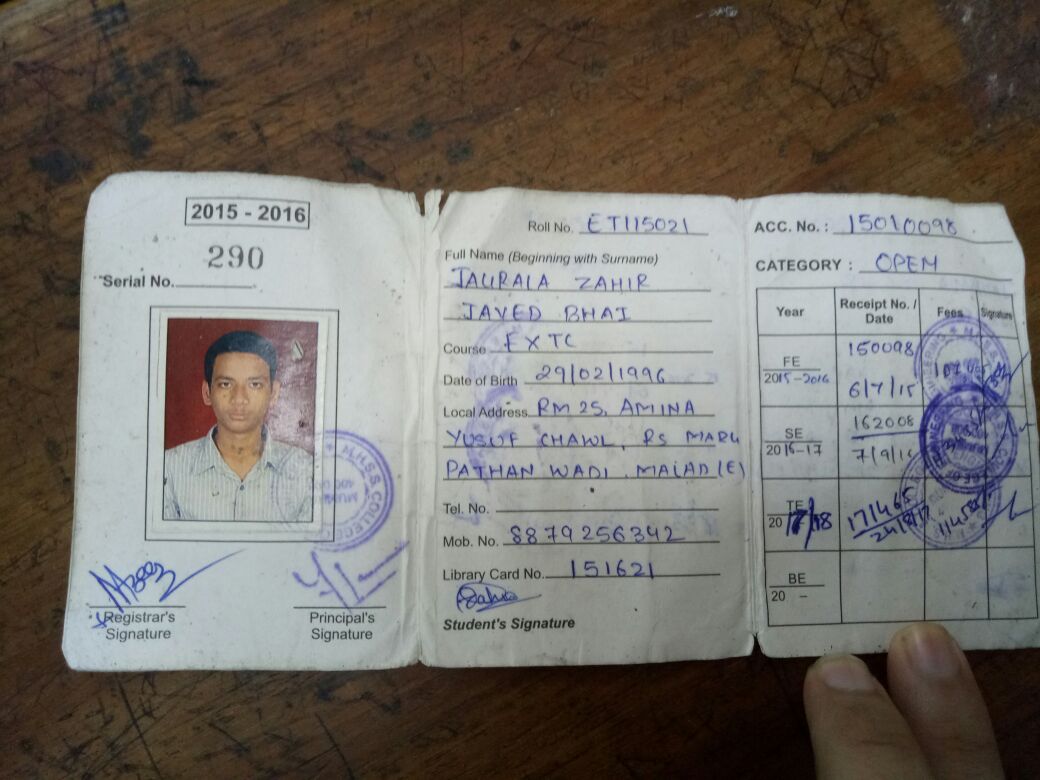 2015 - 2016
290
Serial No.
Registrar's
Signature
Principal's
Signature
Roll No. ET115021
Full Name (Beginning with Surname)
JAURALA ZAHIR
JAVED BHAI
Course EXTC
Date of Birth 29/02/1996
Local Address RM 25, AMINA
YUSUF CHAWL, RS MARG
PATHAN WADI . MALAD (E)
Tel. No.
Mob. No. 8879256342
Library Card No. 151621
Student's Signature
ACC. No. : 15010098
CATEGORY : OPEM
Year Receipt No. / Date Fees Signature
FE 150098
2015-2016 6/7/15
SE 162008
2016-17 7/9/16
TE 171465
2017/18 24/8/17
BE
20 –
M.H.S.S. COLLEGE